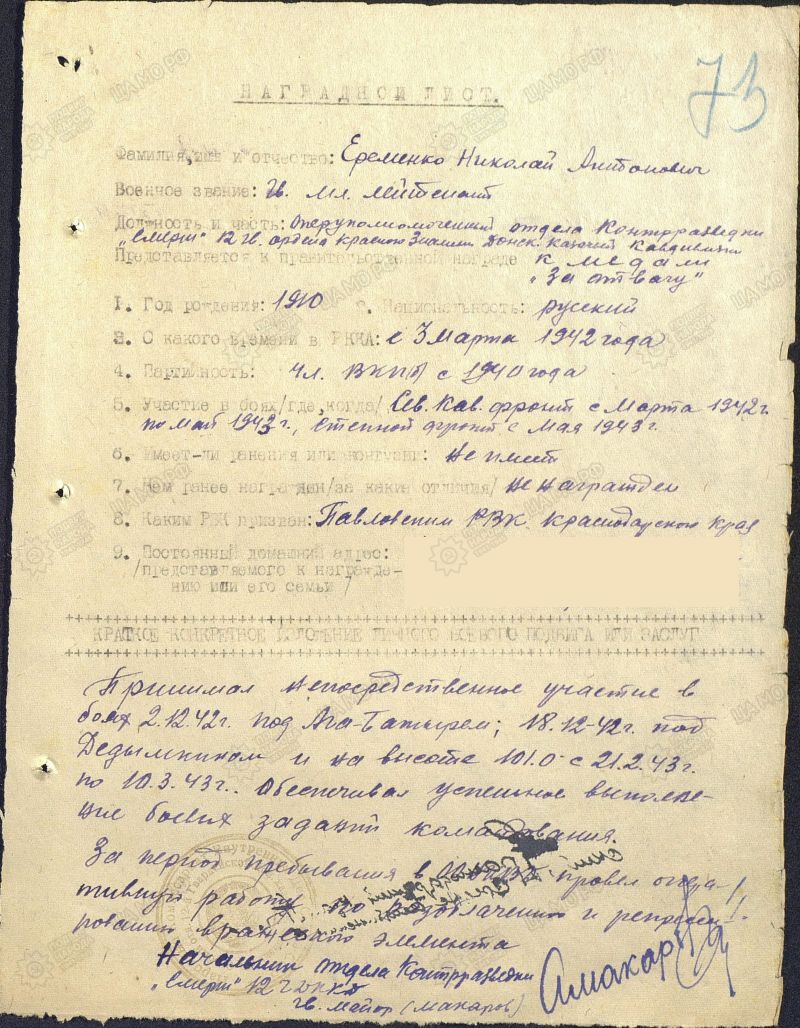 73
НАГРАДНОЙ ЛИСТ.
Фамилия, имя и отчество: Еременко Николай Антонович
Военное звание: Гв. мл. лейтенант
Должность и часть: Оперуполномоченный отдела Контрразведки
"Смерш" 12 Гв. ордена Красного Знамени Донск. Казачий Кавдивизии
Представляется к правительственной награде к медали
"За отвагу"
1. Год рождения: 1910 2. Национальность: русский
3. С какого времени в РККА: с 3 Марта 1942 года
4. Партийность: чл. ВКПб с 1940 года
5. Участие в боях/где, когда/ Сев. Кав. фронт с Марта 1942 г.
по май 1943 г., Степной фронт с Мая 1943 г.
6. Имеет-ли ранения или контузии: Не имеет
7. Чем ранее награжден/за какие отличия/ Не награжден
8. Каким РВК призван: Павловским РВК Краснодарского края
9. Постоянный домашний адрес:
/представляемого к награжде-
нию или его семьи/
КРАТКОЕ КОНКРЕТНОЕ ИЗЛОЖЕНИЕ ЛИЧНОГО БОЕВОГО ПОДВИГА ИЛИ ЗАСЛУГ
Принимал непосредственное участие в
боях 2.12.42 г. под Ага-Батырем; 18.12-42 г. под
Дедымкином и на высоте 101.0 с 21.2.43 г.
по 10.3.43 г.. Обеспечивал успешное выполне-
ние боевых заданий командования.
За период пребывания в провел
тивную работу по разоблачению и репресси-
рованию вражеского элемента
Начальник отдела Контрразведки
"Смерш" 12 ГДККД
Гв. майор (Макаров)
АМакаров